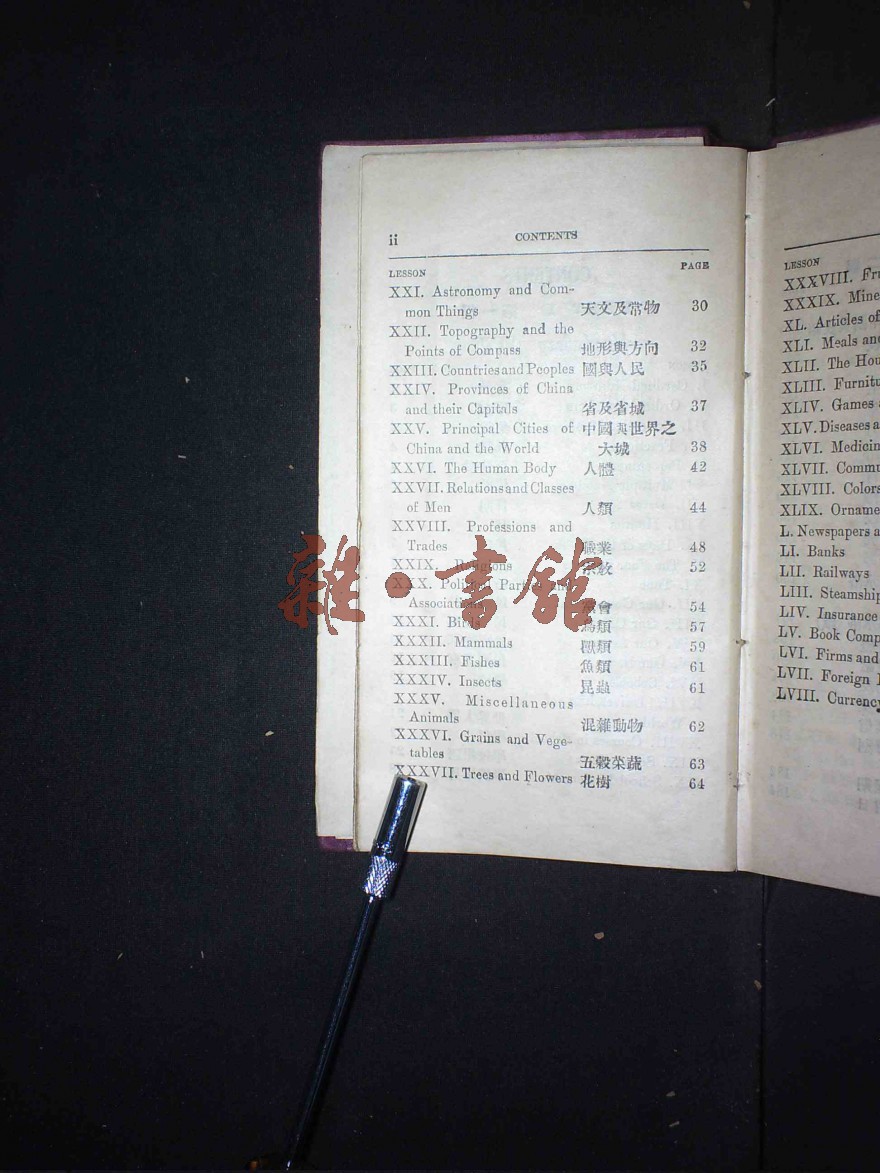 ii CONTENTS
LESSON PAGE
XXI. Astronomy and Com-
mon Things 天文及常物 30
XXII. Topography and the
Points of Compass 地形與方向 32
XXIII. Countries and Peoples 國與人民 35
XXIV. Provinces of China
and their Capitals 省及省城 37
XXV. Principal Cities of 中國與世界之
China and the World 大城 38
XXVI. The Human Body 人體 42
XXVII. Relations and Classes
of Men 人類 44
XXVIII. Professions and
Trades 職業 48
XXIX. Religions 宗教 52
XXX. Political Parties and
Associations 會 54
XXXI. Birds 鳥類 57
XXXII. Mammals 獸類 59
XXXIII. Fishes 魚類 61
XXXIV. Insects 昆蟲 61
XXXV. Miscellaneous
Animals 混雜動物 62
XXXVI. Grains and Vege-
tables 五穀菜蔬 63
XXXVII. Trees and Flowers 花樹 64
雜·書館
LESSON
XXXVIII. Fru
XXXIX. Mine
XL. Articles of
XLI. Meals and
XLII. The Hou
XLIII. Furnitu
XLIV. Games
XLV. Diseases a
XLVI. Medicin
XLVII. Commu
XLVIII. Colors
XLIX. Orname
L. Newspapers a
LI. Banks
LII. Railways
LIII. Steamship
LIV. Insurance
LV. Book Comp
LVI. Firms and
LVII. Foreign
LVIII. Currency